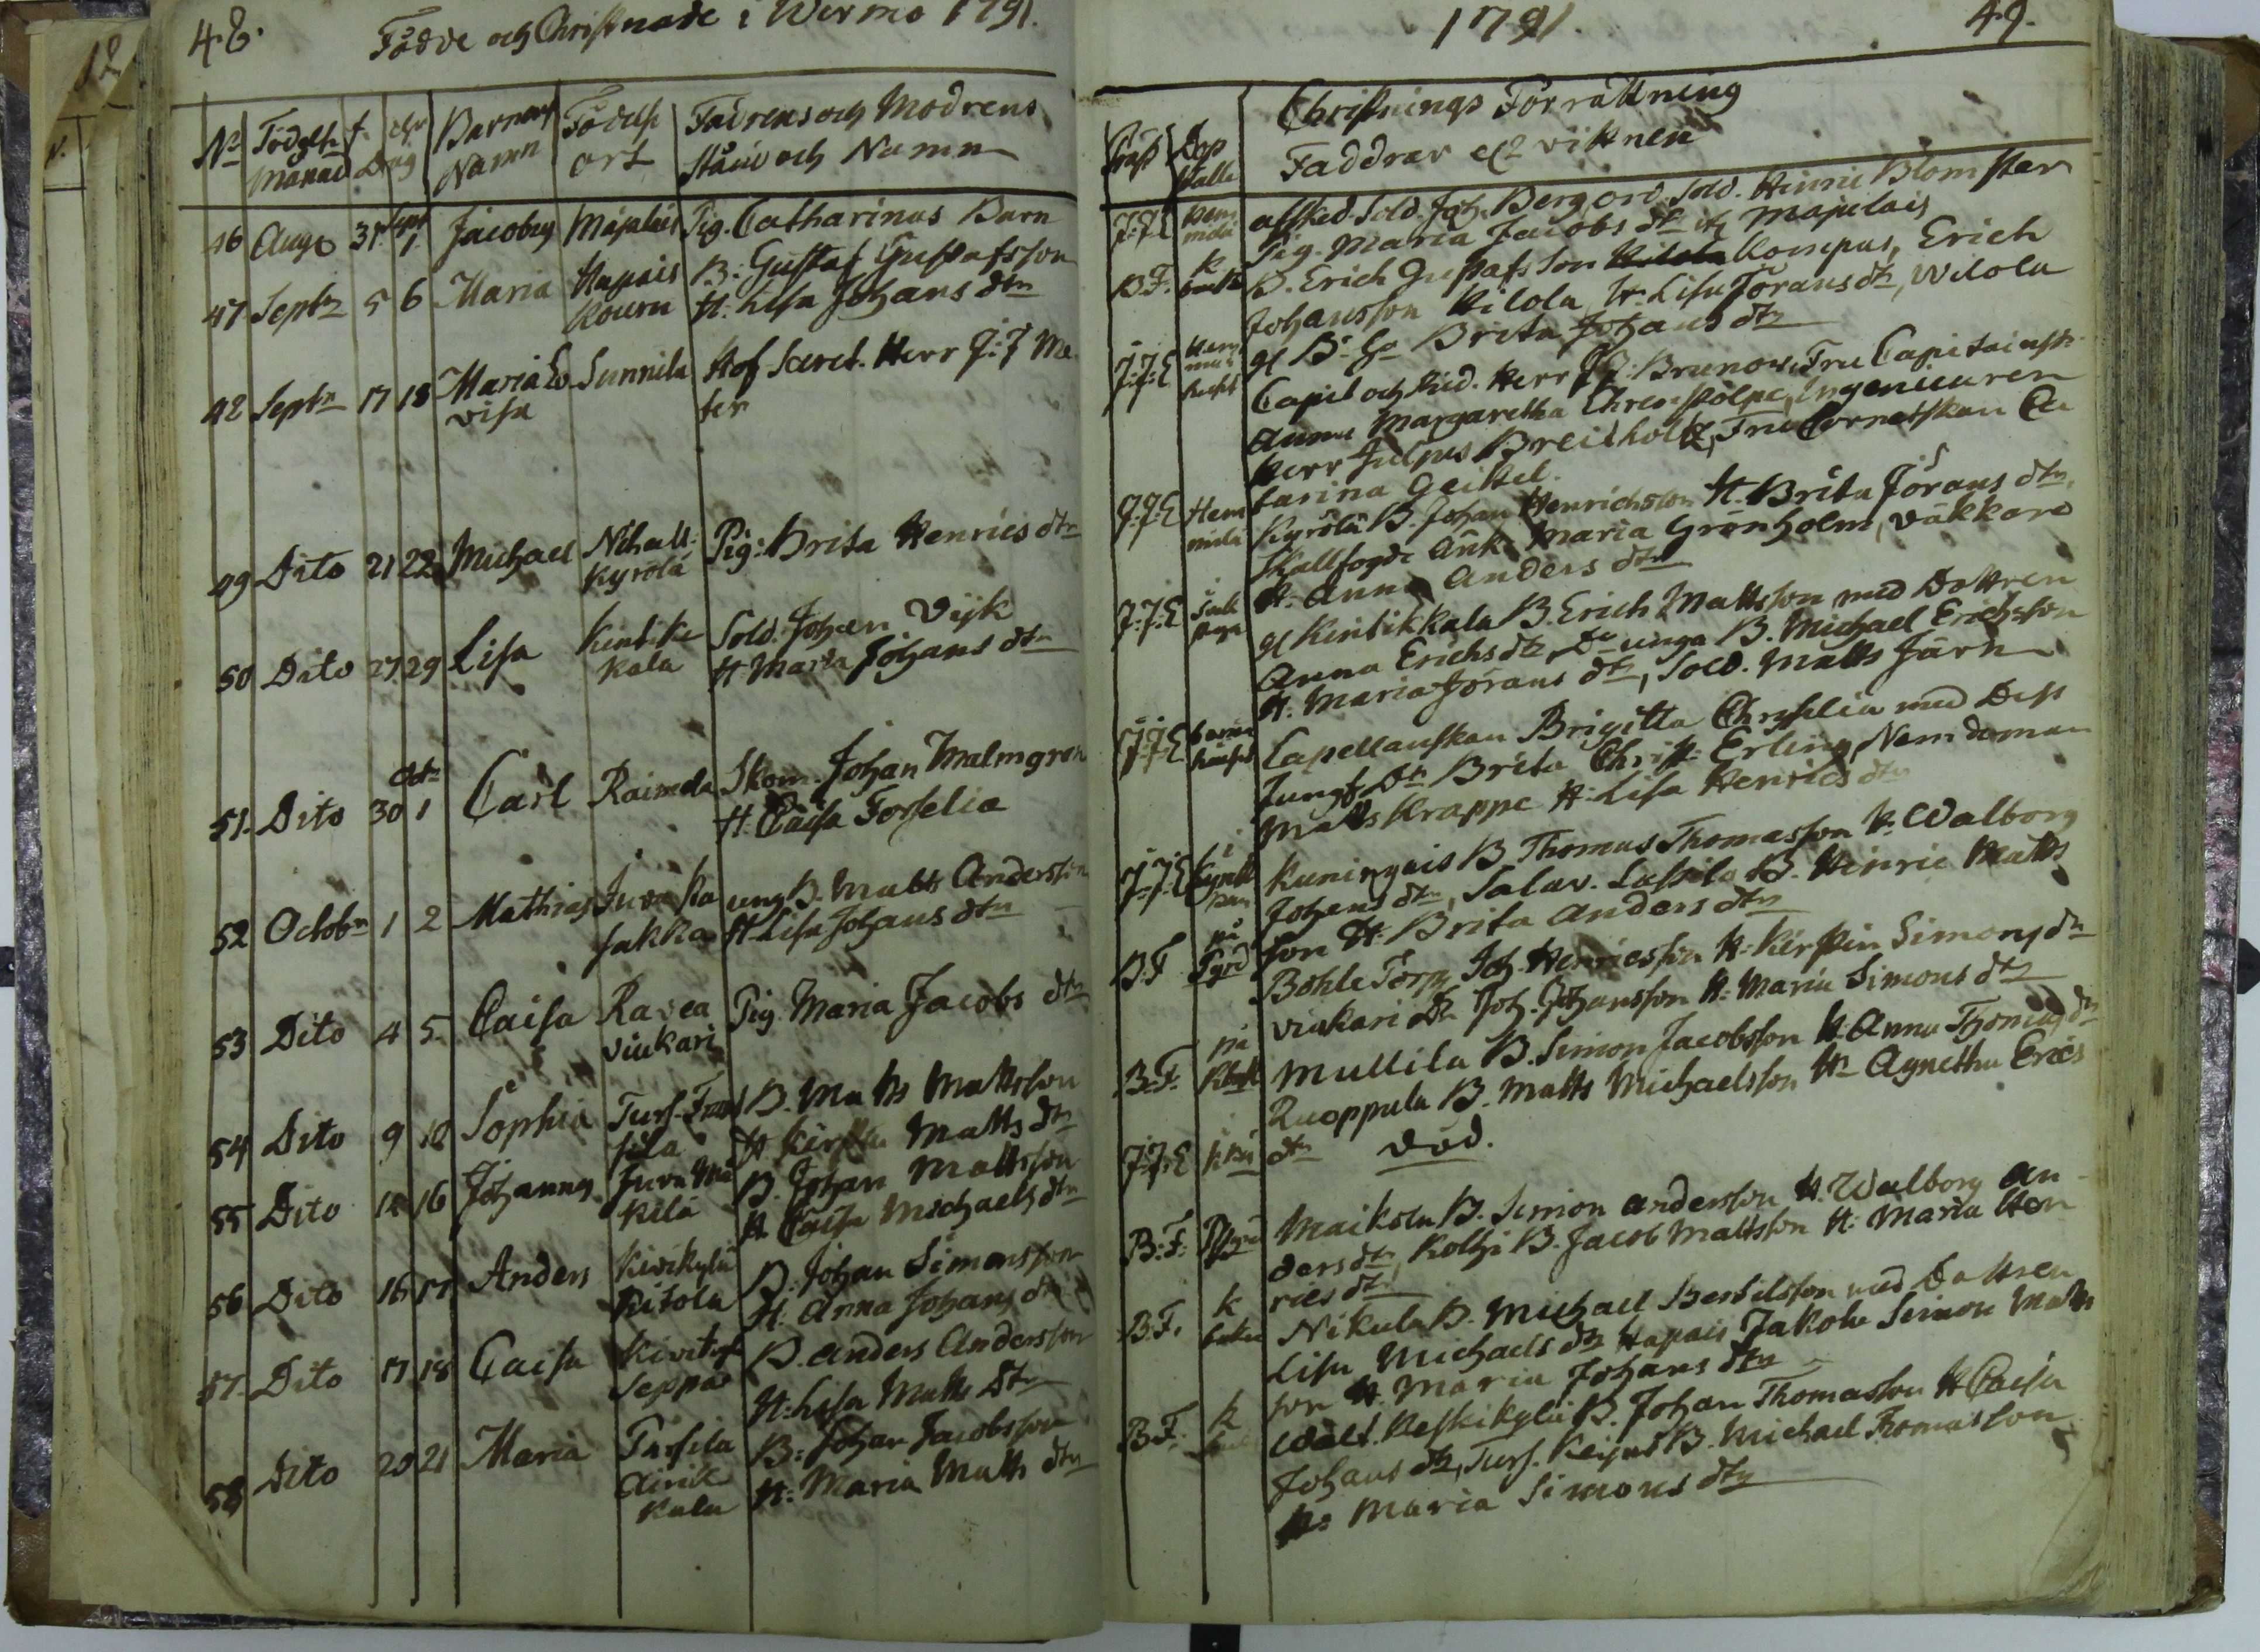 48. Födde och Christnade i Wirmo 1791.
No Födelse Månad f. chr Dag Barnens Namn Födelse ort Fadrens och Modrens Stånd och Namn
46 Aug 31 Sept 1 Jacobus Majalais Pig. Catharinas Barn
47 Septr 5 6 Maria Hapais Kouru B: Gustaf Gustafsson
H. Lisa Johans dtr
48 Septr 17 18 Maria Lovisa Sunnila Hof Secret. Herr J: J Me
ler
49 Dito 21 22 Michael Nihatt. Kyrölä Pig: Brita Henrics dtr
50 Dito 27 29 Lisa Kintikkala Sold. Johan Vijk
H Maria Johans dtr
51. Dito 30 Octr 1 Carl Raimela Skom. Johan Malmgren
H. Caisa Forselia
52 Octobr 1 2 Mathias Juva ung B. Matts Andersson
H Lisa Johans dtr
53 Dito 4 5 Caisa Ravea viukari Pig. Maria Jacobs dtr
54 Dito 9 10 Sophia B. Matts Mattsson
H Kirstin Matts dtr
55 Dito 16 Johannes B. Johan Mattsson
H Caisa Michaels dtr
56 Dito 16 17 Anders Kivikylä Ritola B. Johan Simonsson
H. Anna Johans dtr
57. Dito 17 18 Caisa Seppä B. Anders Andersson
H. Lisa Matts dtr
58 Dito 20 21 Maria Pursila B: Johan Jacobsson
H: Maria Matts dtr
1791. 49.
Dop Christnings Förrättning
Faddrar och vittnen
J:J:E afsked. Sold. Joh. Berg ord. Sold. Hinric Blomster
Pig. Maria Jacobs dtr Majalais
B.F. B. Erich Gustafsson Kompus, Erich
Johansson Kilola, H. Lisa Jörans dtr, Wilola
gl B: Brita Johans dtr
J:J:E Capit och Rid. Herr Brunow, Fru Capitainsk
Anna Margaretha Ehrenstolpe, Ingenieuren
Herr Julius Breitholtz, Fru Cornetskan Ca
tarina Geitel.
J:J:E Hem Kyrölä B. Johan Henrichsson H. Brita Jörans dtr,
Skallfogde Änk. Maria Grönholm, väkkare
H. Anna Anders dtr
J:J:E gl Kintikkala B. Erich Mattsson med Dottren
Anna Erichs dtr, Do unga B. Michael Erichsson
H. Maria Jörans dtr, Sold. Matts Järn
J:J:E Capellanskan Brigitta Chryselia med Dess
Jungf. Dtr Brita Christ: Erling, Nämdeman
Matts Krappe H. Lisa Henrics dtr
J:J:E Kuningais B Thomas Thomasson H. Walborg
Johans dtr, Salav. Lassila B. Hinric Matts
son H. Brita Anders dtr
B.F på Bohle Torp Joh. Henricsson H. Kirstin Simons dtr
viukari Joh. Johansson H. Maria Simons dtr
B.F. på Mullila B. Simon Jacobsson H. Anna Thomas dtr
Ruoppula B. Matts Michaelsson H. Agnetha Erics
J:J:E dtr död.
B:F: Maikola B. Simon Andersson H. Walborg An
ders dtr, Kolhi B. Jacob Mattsson H: Maria Hen
rics dtr
B.F. k Nikula B. Michael Bertilsson med Dottren
Lisa Michaels dtr Hapais Jakola Simon Matts
son H. Maria Johans dtr
B.F. k Walt. Keskikylä B. Johan Thomasson H Caisa
Johans dtr, B. Michael Thomasson
H: Maria Simons dtr